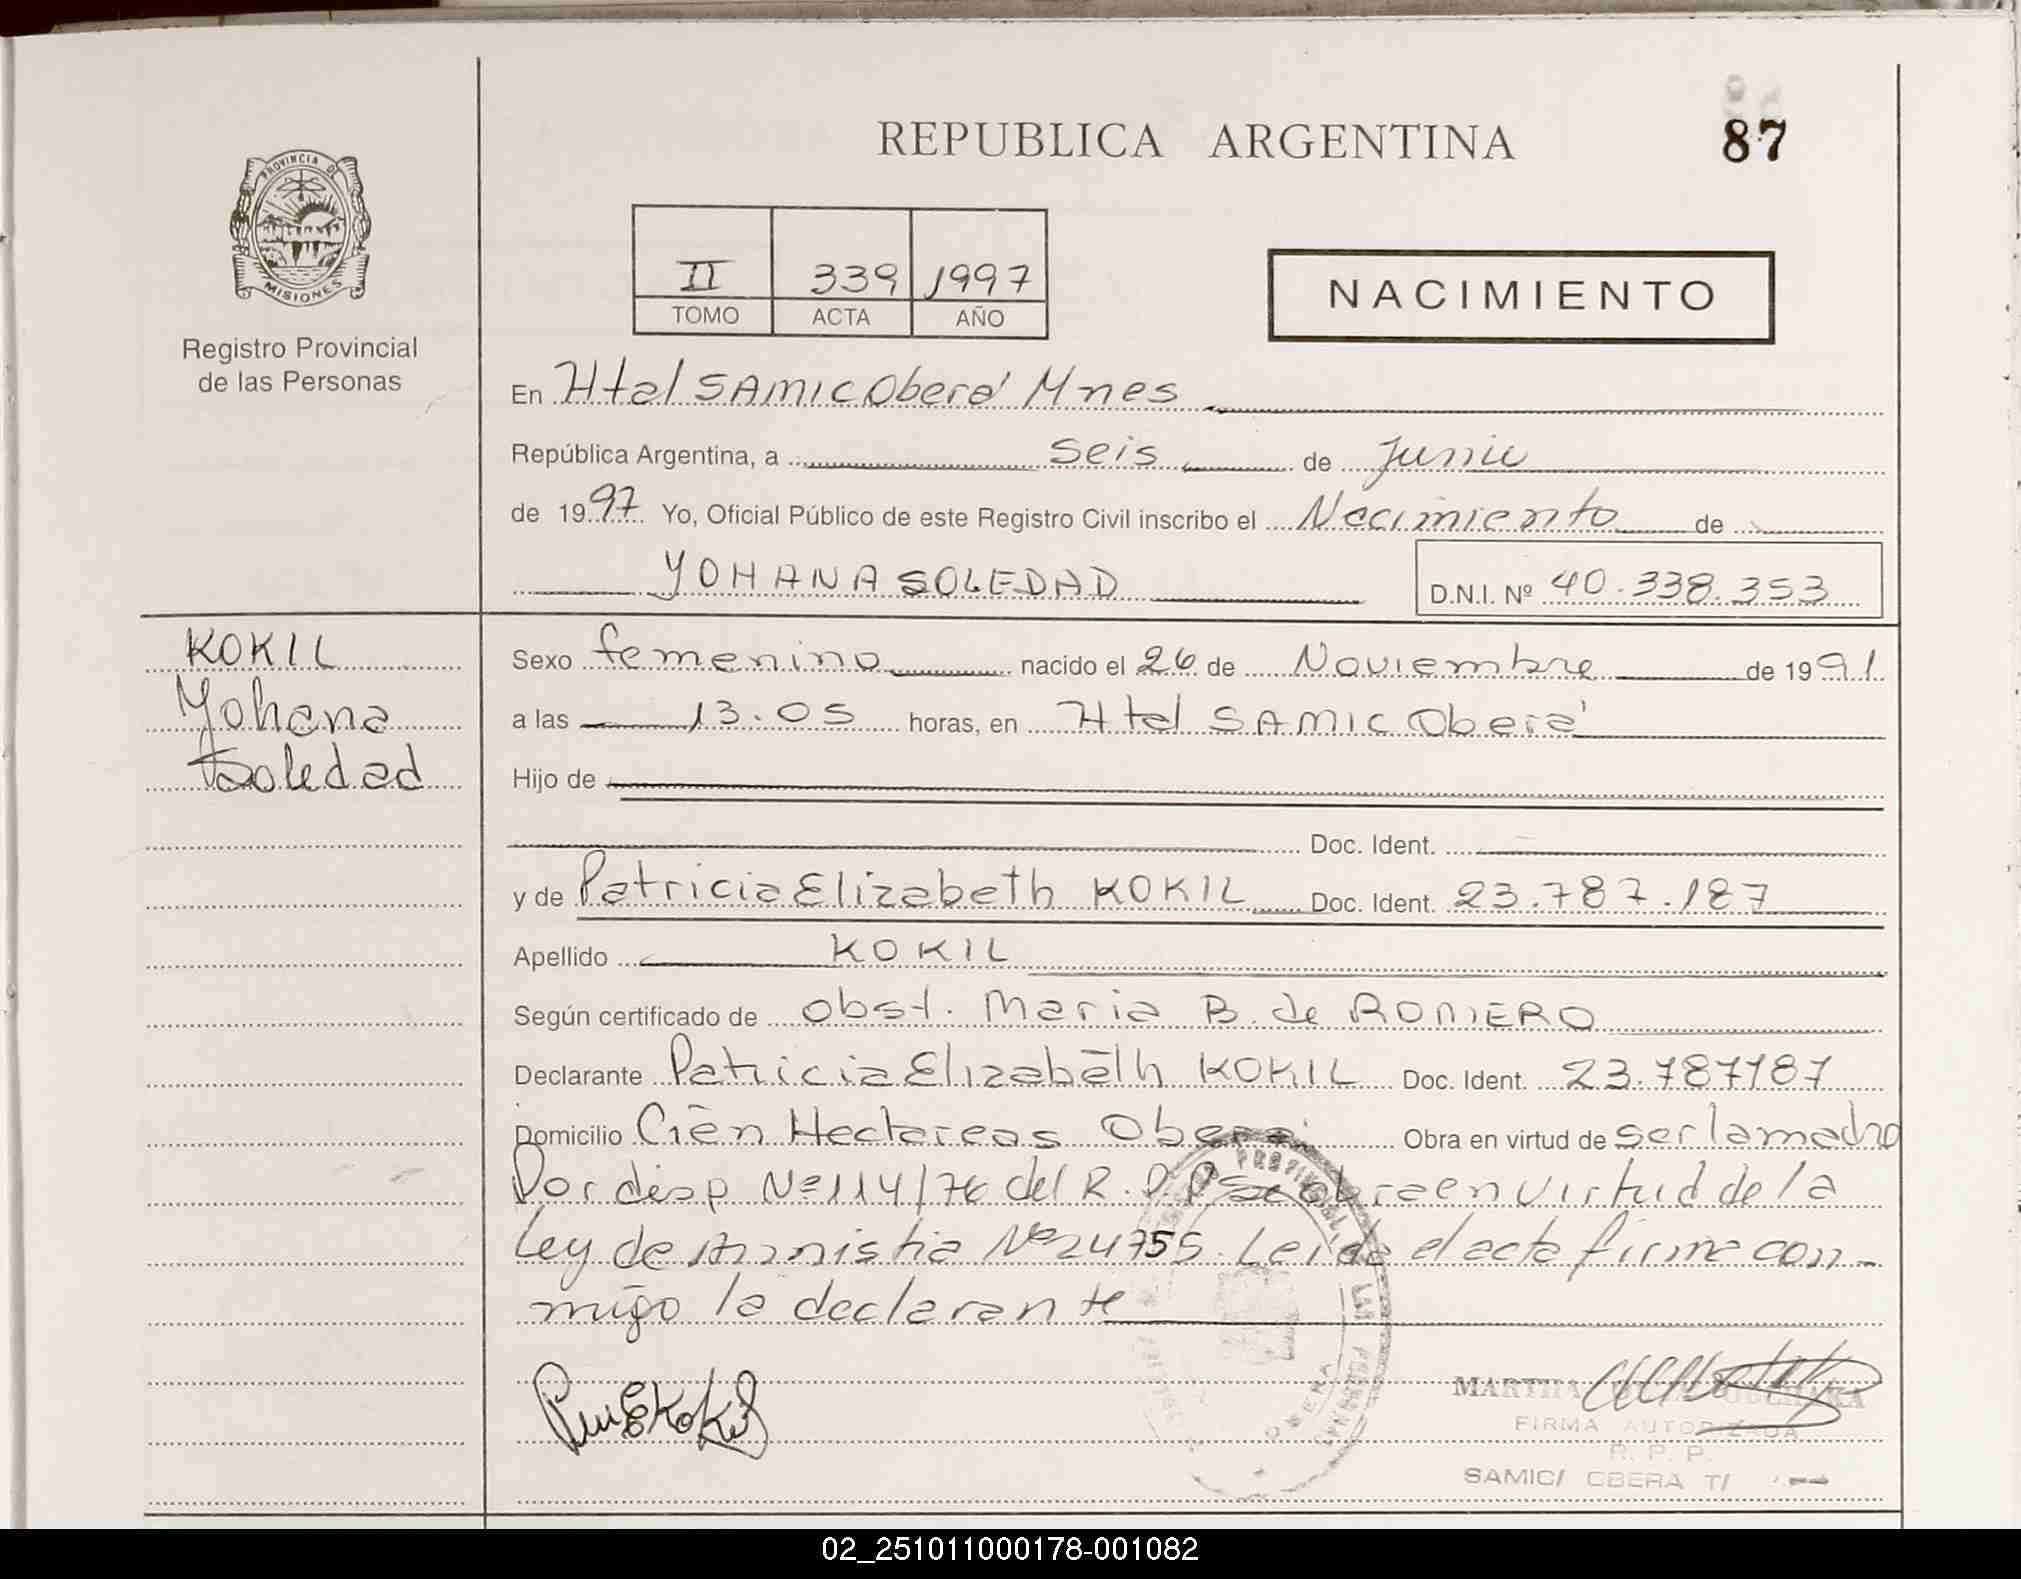 REPUBLICA ARGENTINA
87
PROVINCIA DE
MISIONES
Registro Provincial
de las Personas
II 339 1997
TOMO ACTA AÑO
NACIMIENTO
En Htal SAMIC Oberá Mnes
República Argentina, a seis de Junio
de 1997 Yo, Oficial Público de este Registro Civil inscribo el Nacimiento de
YOHANA SOLEDAD
D.N.I. Nº 40.338.353
KOKIL
Yohana
Soledad
Sexo femenino nacido el 26 de Noviembre de 1991
a las 13.05 horas, en Htal SAMIC Oberá
Hijo de
Doc. Ident.
y de Patricia Elizabeth KOKIL Doc. Ident. 23.787.187
Apellido KOKIL
Según certificado de Obst. Maria B. de ROMERO
Declarante Patricia Elizabeth KOKIL Doc. Ident. 23.787187
Domicilio Cien Hectareas Oberá Obra en virtud de ser la madre
Por disp Nº 114/76 del R.P.P se obra en virtud de la
Ley de Amnistia Nº 24755. Leida el acta firma con-
migo la declarante
MARTHA
FIRMA AUTORIZADA
R. P. P.
SAMIC/ OBERA T/
OBERA
02_251011000178-001082